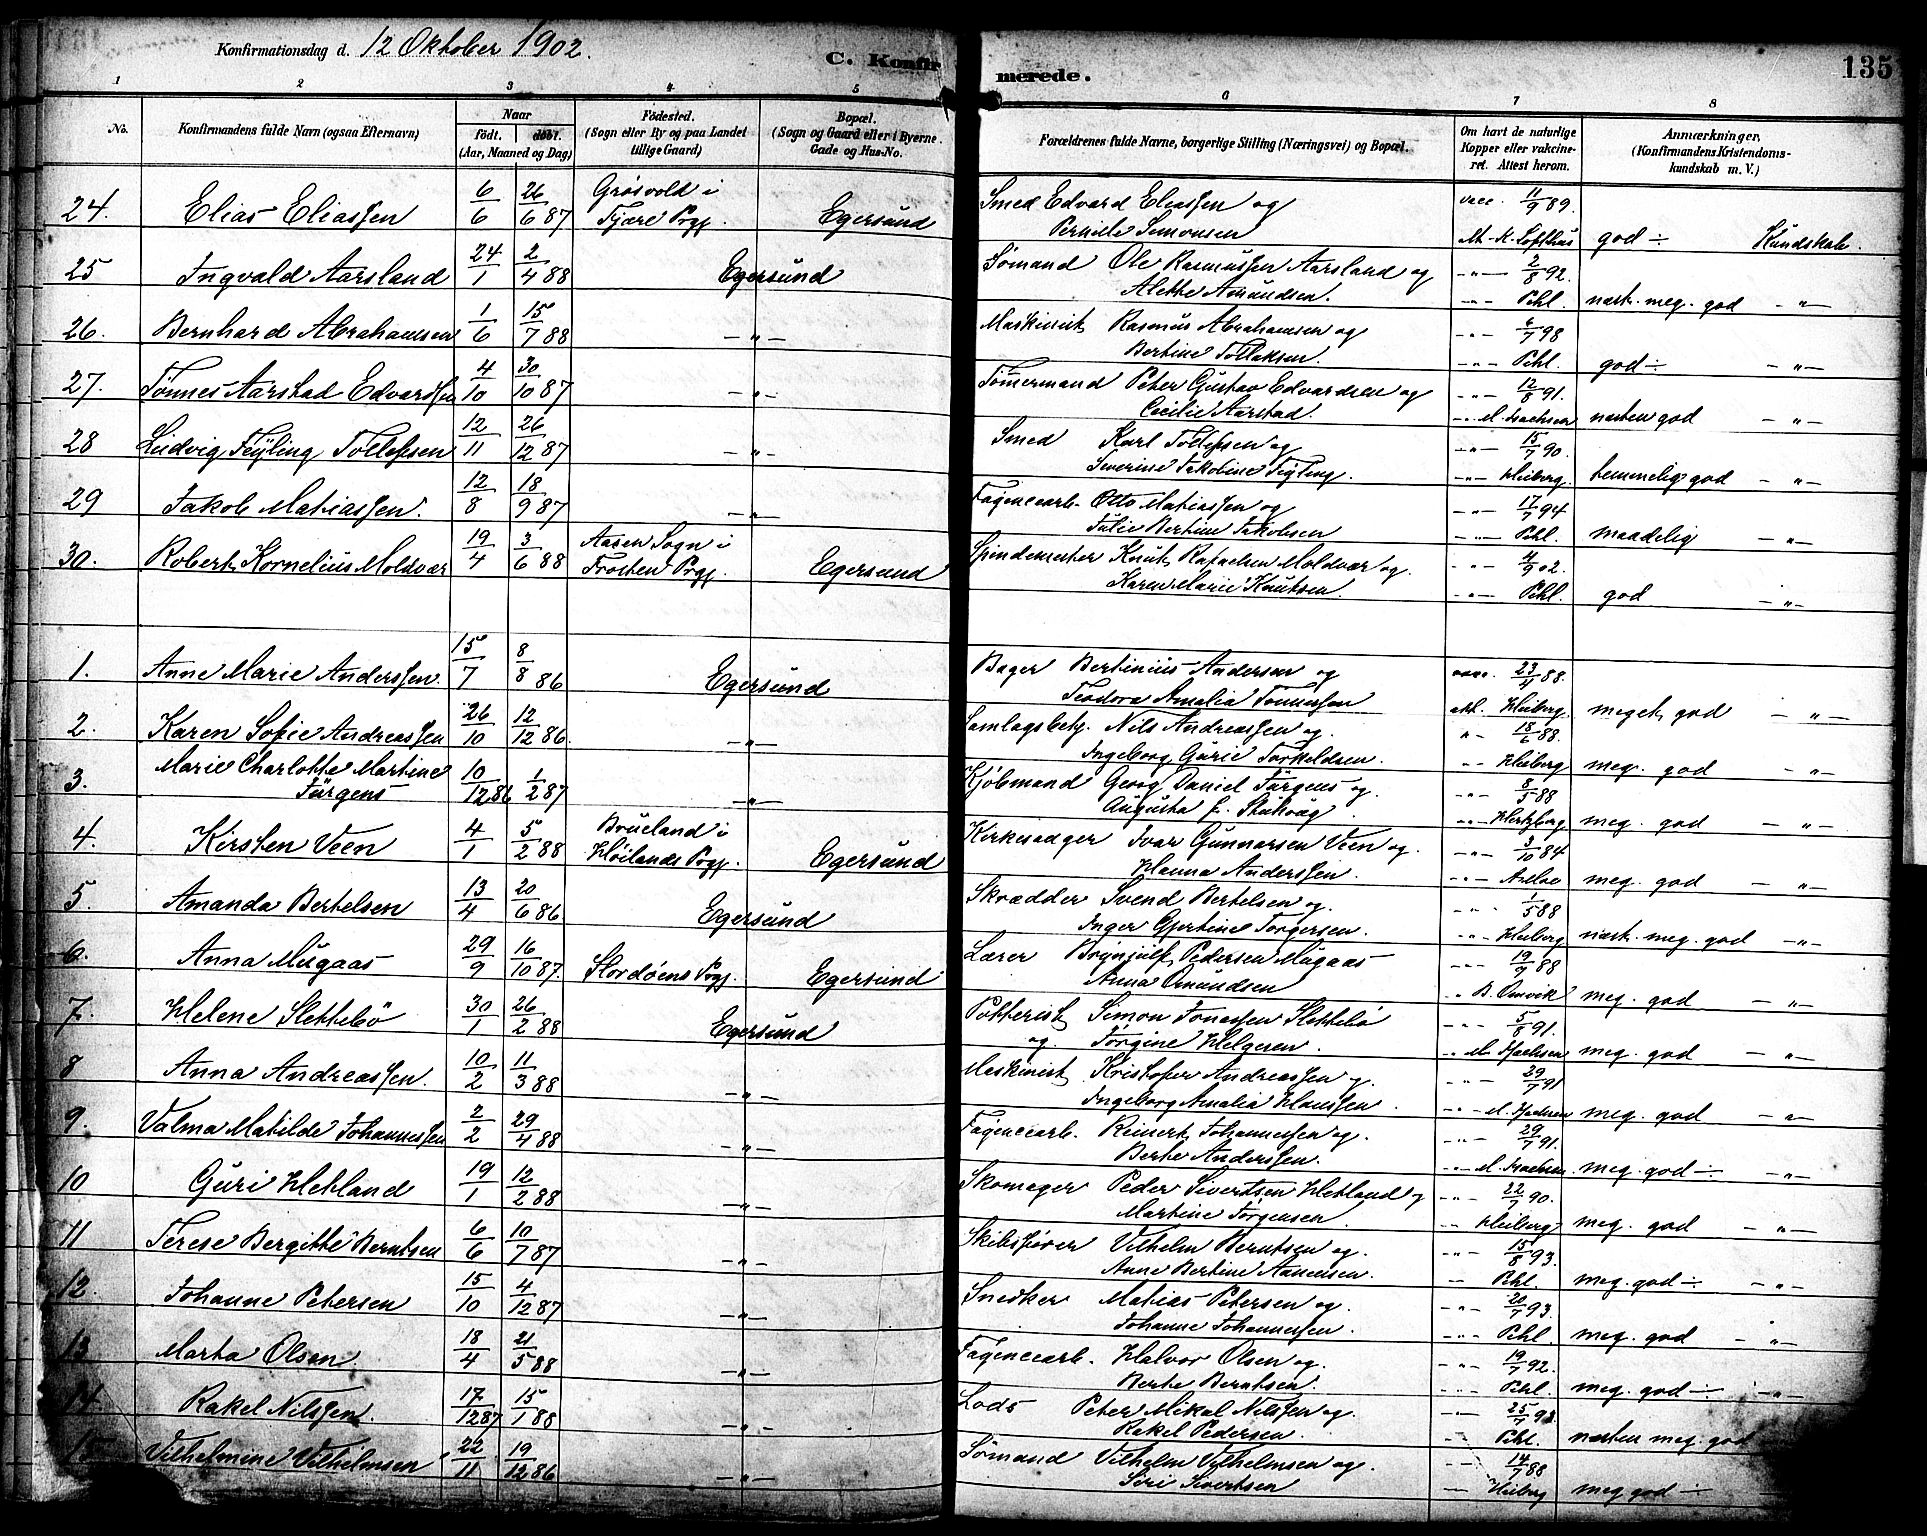 Konfirmationsdag d. 12 Oktober 1902.
C. Konfirmerede.
135
1 2 3 4 5 6 7 8
No.
Konfirmandens fulde Navn (ogsaa Efternavn)
Naar
født. døbt.
(Aar, Maaned og Dag)
Fødested.
(Sogn eller By og paa Landet
tillige Gaard)
Bopæl.
(Sogn og Gaard eller i Byerne
Gade og Hus-No.
Forældrenes fulde Navne, borgerlige Stilling (Næringsvei) og Bopæl.
Om havt de naturlige
Kopper eller vakcine-
ret. Attest herom.
Anmærkninger,
(Konfirmandens Kristendoms-
kundskab m. V.)
24. Elias Eliassen 6/6 26/6 87 Grøsvold i Fjære Prgj. Egersund Smed Edvard Eliassen og vacc. 11/9 89.
Pernille Simonsen god ÷ Kundskab.
25 Ingvald Aarsland 24/1 2/4 88 Egersund Sømand Ole Rasmussen Aarsland og -"- 2/8 92.
Alette Amundsen. -"- Pihl. næst. meg. god -"-
26. Bernhard Abrahamsen 1/6 15/7 88 -"- Maskinist Rasmus Abrahamsen og -"- 6/7 98
Bertine Tollaksen. -"- Pihl. god ÷ -"-
27. Tønnes Aarstad Edvardsen 4/10 30/10 87 -"- Tømermand Peter Gustav Edvardsen og -"- 12/8 91.
Cecilie Aarstad. -"- M. Isachsen næsten god -"-
28 Ludvig Feyling Tollefsen 12/11 26/12 87 -"- Smed Karl Tollefsen og -"- 15/7 90.
Severine Jakobine Feyling. -"- Heiberg. temmelig god -"-
29 Jakob Matiassen. 12/8 18/9 87 -"- Fagencearb. Otto Matiassen og -"- 17/7 94
Julie Bertine Jakobsen -"- Pihl. maadelig -"-
30. Robert Kornelius Moldvær 19/4 3/6 88 Aasen Sogn i Frosten Prgj. Egersund Spindemester Knut Rafaelsen Moldvær og. -"- 4/9 02.
Karen Marie Knutsen. -"- Pihl. god -"-
1. Anne Marie Anderssen. 15/7 8/8 86 Egersund Bager Bertinius Andersen og vacc. 23/4 88.
Teodora Amalia Tønnessen att. Heiberg. meget god -"-
2. Karen Sofie Andreassen 26/10 12/12 86. -"- Samlagsbest. Nils Andreassen og. "- 18/6 88.
Ingeborg Gurie Torkeldsen. -"- Heiberg meg. god -"-
3. Marie Charlotte Martine
Jürgens 10/12 86 1/2 87 -"- Kjøbmand Georg Daniel Jürgens og. -"- 8/5 88
Augusta f. -"- Hertzberg meg. god -"-
4. Kirsten Veen 4/1 5/2 88 Brueland i Høilands Prgj. Egersund Kirkesanger Ivar Gunnarsen Veen og. -"- 3/10 84
Hanna Anderssen. -"- meg. god -"-
5. Amanda Bertelsen 13/4 20/6 86 Egersund Skrædder Svend Bertelsen og. -"- 1/5 88
Inger Gjertine Torgersen. -"- Heiberg næst. meg. god -"-
6. Anna Mugaas 29/9 16/10 87. Stordøens Prgj. Egersund Lærer Brynjulf Pedersen Mugaas -"- 19/9 88
Anna Omundsen -"- B. Omvik meg. god -"-
7. Helene Slettebö 30/1 26/2 88 Egersund Potterist Simon Jonassen Slettebö -"- 5/8 91.
og. Jörgine Helgesen. -"- M. Isachsen meg. god -"-
8 Anna Andreassen. 10/2 11/3 88 -"- Maskinist Kristofer Andreassen og. -"- 29/7 91
Ingeborg Amalia Hanssen. -"- M. Isachsen meg. god -"-
9. Valma Matilde Johannessen 2/2 29/4 88 -"- Fagencearb. Reinert Johannessen og. -"- 29/7 91.
Berte Anderssen. -"- M. Isachsen. meg. god ÷ -"-
10 Guri Hetland 19/1 12/2 88 -"- Skomager Peder Sivertsen Hetland og -"- 22/7 90.
Martine Jörgensen. -"- Heiberg meg. god -"-
11 Terese Bergitte Berntsen 6/6 10/7 87 -"- Skibsfører Vilhelm Berntsen og. -"- 15/8 93.
Anne Bertine Aanensen. -"- Pihl. meg. god ÷ -"-
12. Johanne Petersen 15/10 4/12 87 -"- Snedker Matias Petersen og. -"- 20/7 93.
Johanne Johannessen. -"- Pihl. meg. god -"-
13 Marta Olsen. 18/4 21/5 88 -"- Fagencearb. Halvor Olsen og. -"- 19/7 92.
Berte Berntsen. -"- Pihl. meg. god ÷ -"-
14. Rakel Nilssen. 17/12 87 15/1 88 -"- Lods Peter Mikal Nilssen og. -"- 25/7 93.
Rakel Pedersen. -"- Pihl. næsten meg. god
15 Vilhelmine Vilhelmsen 22/11 19/12 86 -"- Sømand Vilhelm Vilhelmsen og. -"- 14/7 88
Siri Sivertsen -"- Heiberg meg god ÷